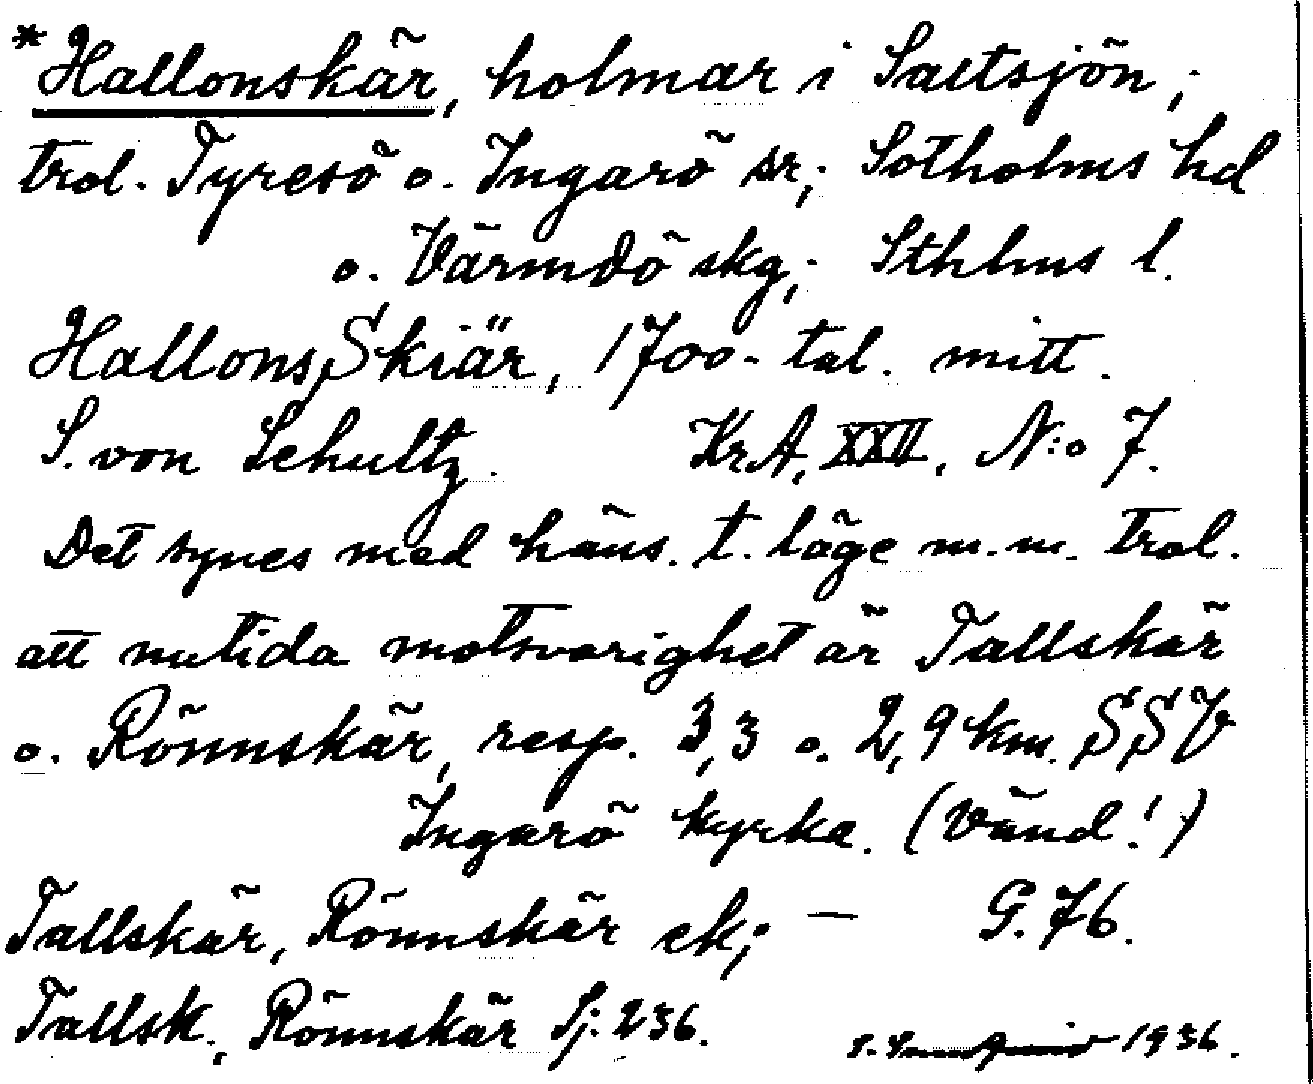 *Hallonskär, holmar i Saltsjön;
trol. Tyresö o. Ingarö sr; Sotholms hd
o. Värmdö skg; Sthlms l.
HallonsSkiär, 1700-tal. mitt.
S. von Schultz. KrA, XXII, N:o 7.
Det synes med häns. t. läge m.m. trol.
att nutida motsvarighet är Tallskär
o. Rönnskär, resp. 3,3 o. 2,9 km. SSV
Ingarö kyrka. (Vänd!)
Tallskär, Rönnskär ek; — G. 76.
Tallsk., Rönnskär Sj. 236.
1936.